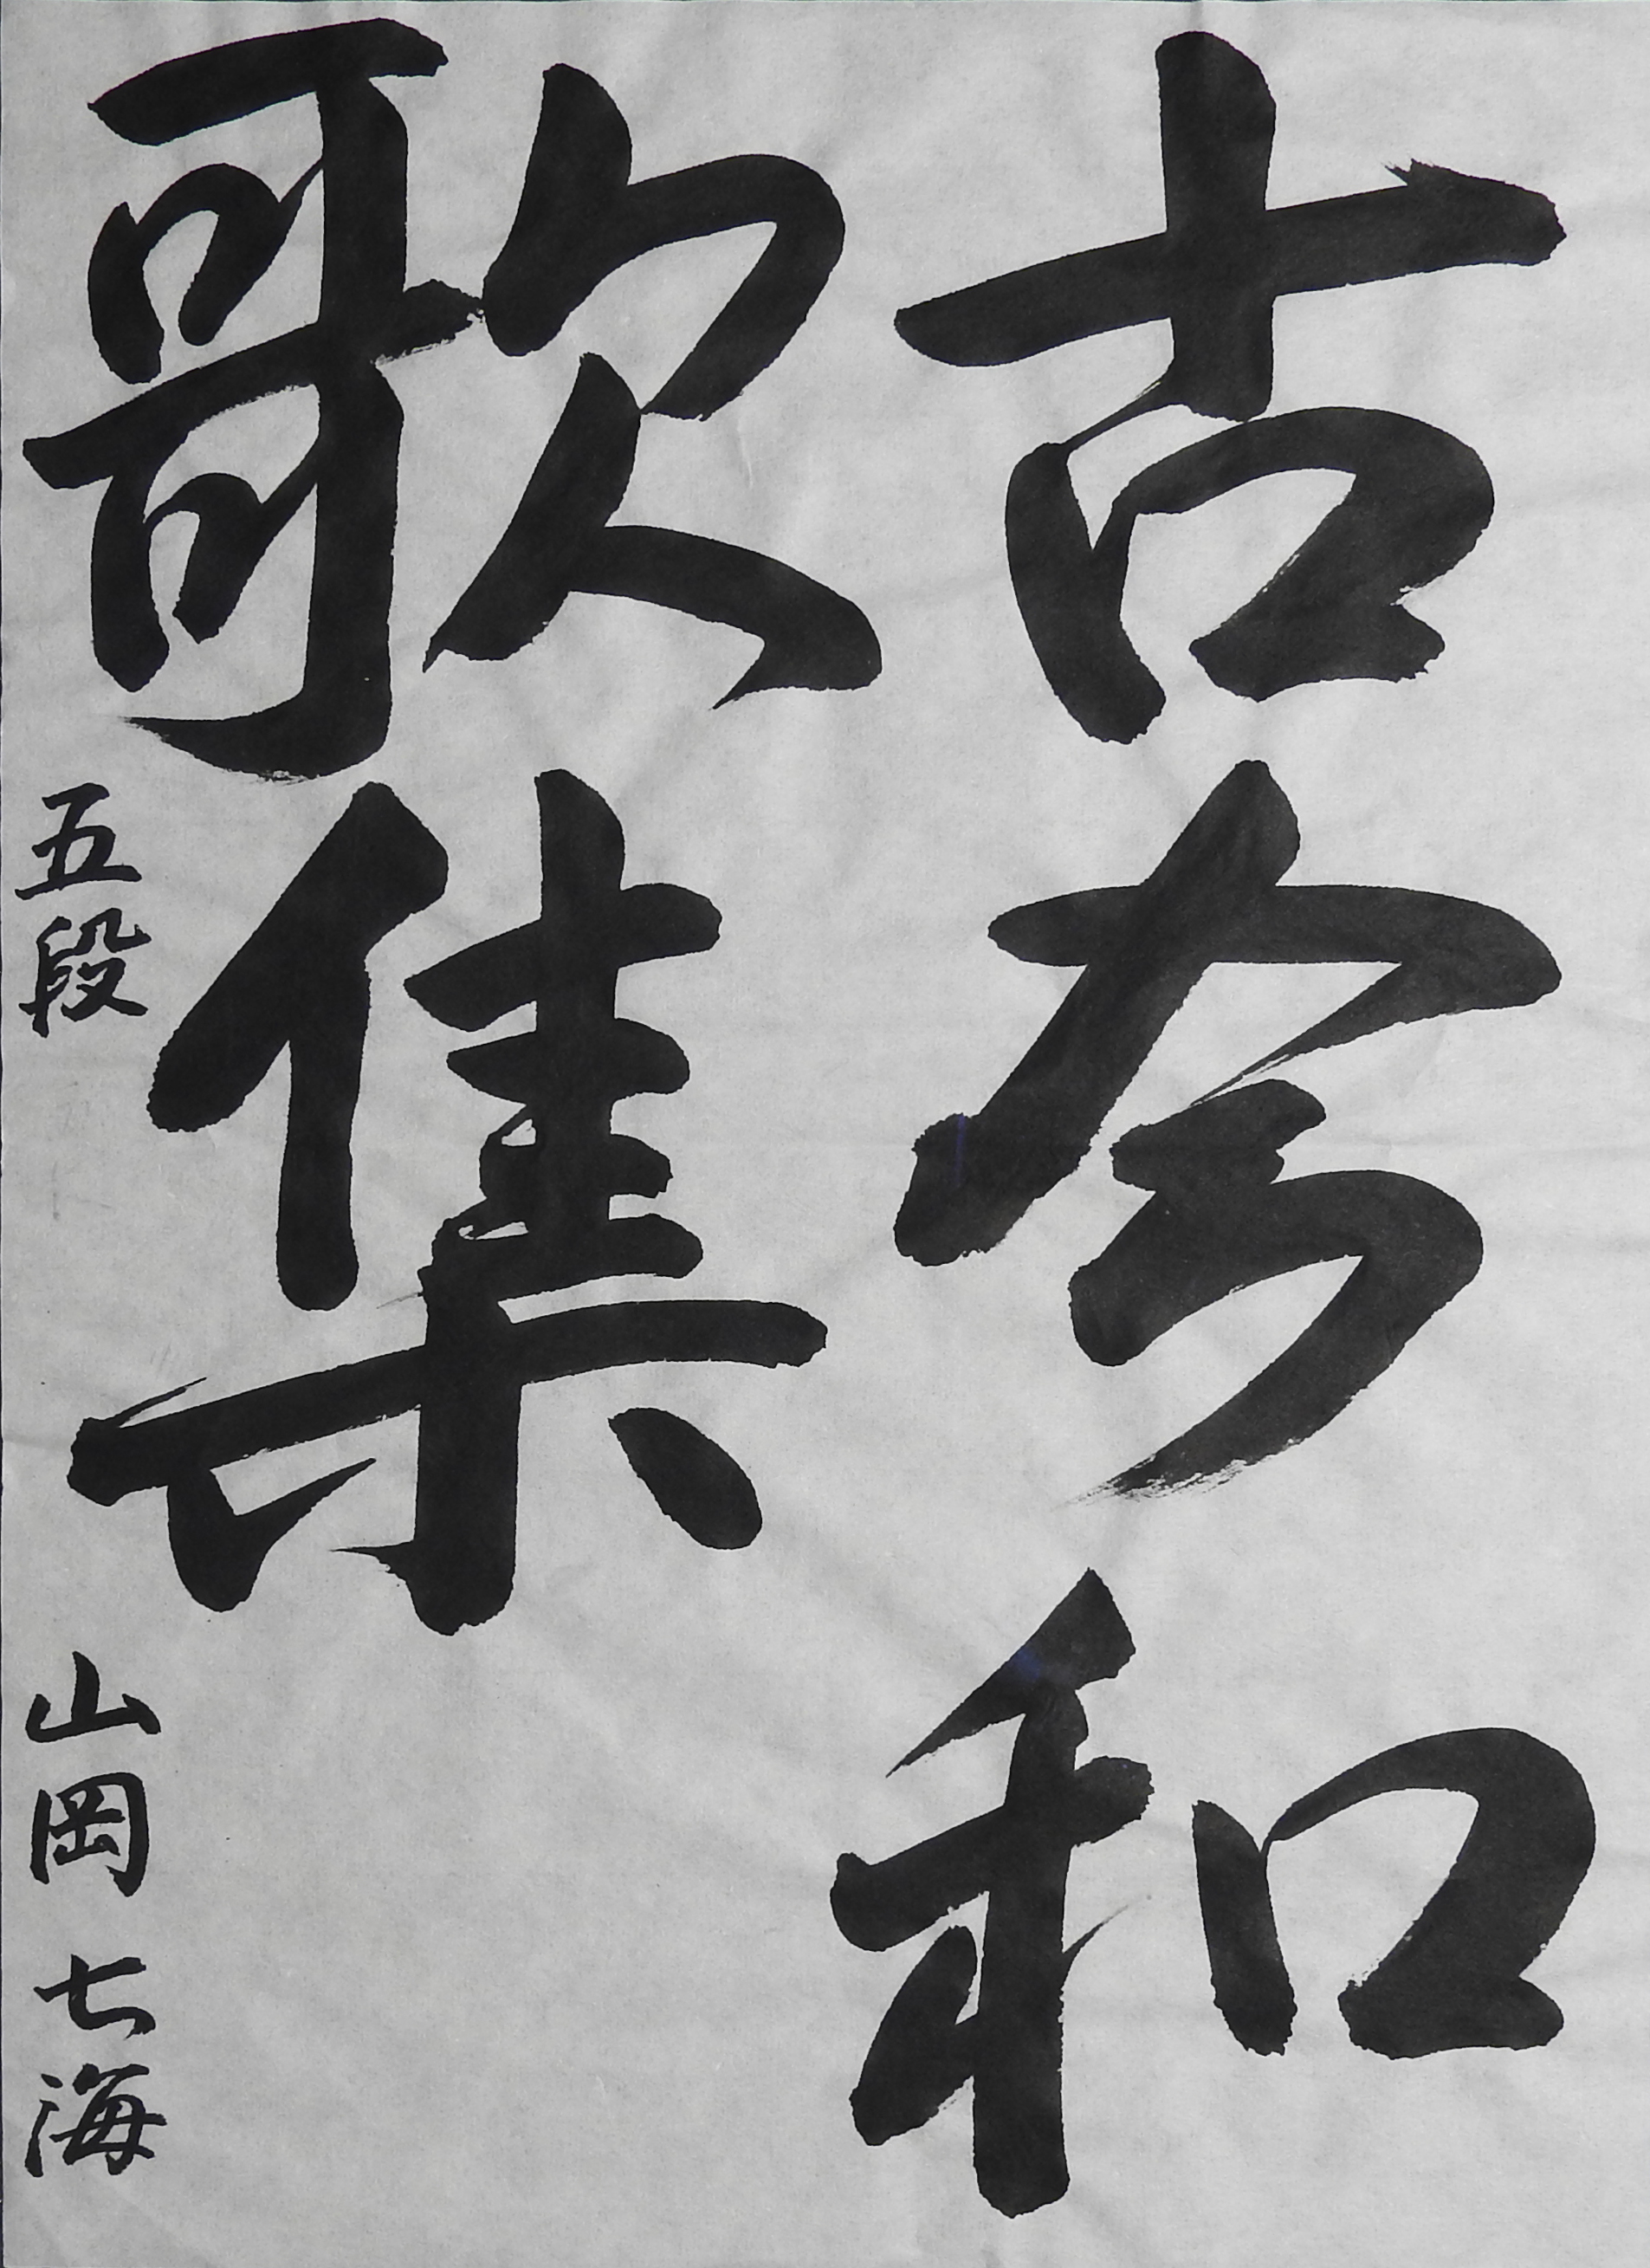 古今和
歌集
五段 山岡七海